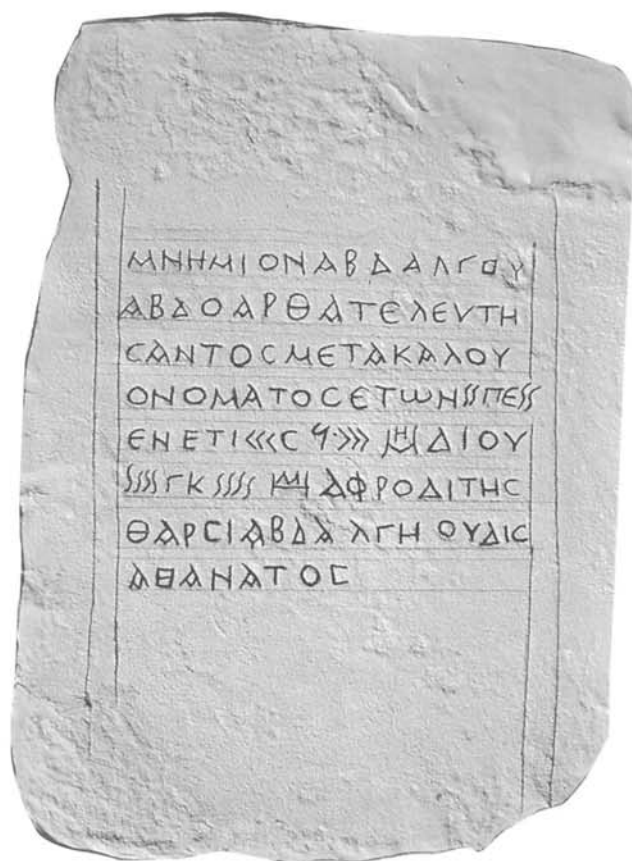 ΜΝΗΜΙΟΝΑΒΔΑΛΓΟΥ
ΑΒΔΟΑΡΘΑΤΕΛΕΥΤΗ
CΑΝΤΟCΜΕΤΑΚΑΛΟΥ
ΟΝΟΜΑΤΟCΕΤΩΝ SS ΠΕ SS
ΕΝΕΤΙ <<< CϞ· >>> ΜΗ ΔΙΟΥ
SSSS ΓΚ SSSS ΗΜ ΑΦΡΟΔΙΤΗC
ΘΑΡCΙΑΒΔΑΛΓΗ ΟΥΔΙC
ΑΘΑΝΑΤΟC